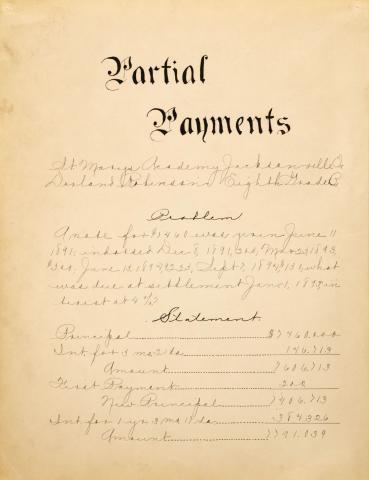 Partial
Payments
St Marys Academy Jacksonville
Dorland Robinson Eighth Grade
Problem
A note for $7460 was given June 11
1891, indorsed Dec 8, 1891, 200, Mar 23, 1893,
June 12, 1894, Sept 1894, what
was due at settlement Jan 1, in
terest at 4%?
Statement.
Principal $7460.000
Int for 5 mo 27 da 146.713
Amount 7606.713
First Payment 200
New Principal 7406.713
Int for 1 yr. 3 mo. da 384.326
Amount 7791.039